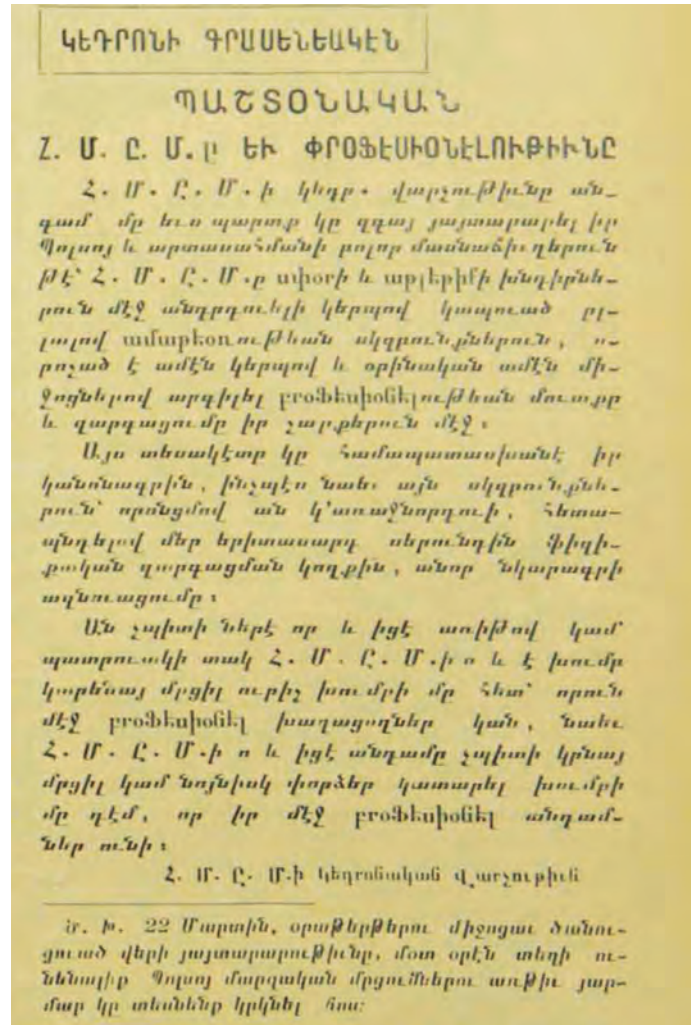 ԿԵԴՐՈՆԻ ԳՐԱՍԵՆԵԱԿԷՆ
ՊԱՇՏՕՆԱԿԱՆ
Հ. Մ. Ը. Մ.ը ԵՒ ՓՐՕՖԷՍԻՕՆԷԼՈՒԹԻՒՆԸ
Հ. Մ. Ը. Մ.ի կեդր. վարչութիւնը ան-
գամ մը եւս պարտք կը զգայ յայտարարել իր
Պոլսոյ և արտասահմանի բոլոր մասնաճիւղերուն
թէ՝ Հ. Մ. Ը. Մ.ը սփօրի և աթլեթիքի խնդիրնե-
րուն մէջ անդրդուելի կերպով կապուած ըլ-
լալով ամաթէօռութեան սկզբունքներուն, ո-
րոշած է ամէն կերպով և օրինական ամէն մի-
ջոցներով արգիլել բրօֆէսիօնէլութեան մուտքը
և զարգացումը իր շարքերուն մէջ։
Այս տեսակէտը կը համապատասխանէ իր
կանոնագրին, ինչպէս նաեւ այն սկզբունքնե-
րուն՝ որոնցմով ան կ՚առաջնորդուի, հետա-
պնդելով մեր երիտասարդ սերունդին ֆիզի-
քական զարգացման կողքին, անոր նկարագրի
ազնուացումը։
Ան չպիտի ներէ որ և իցէ առիթով կամ
պատրուակի տակ Հ. Մ. Ը. Մ.ի ո և է խումբ
կարենայ մրցիլ ուրիշ խումբի մը հետ՝ որուն
մէջ բրօֆէսիօնէլ խաղացողներ կան, նաեւ
Հ. Մ. Ը. Մ.ի ո և իցէ անդամը չպիտի կրնայ
մրցիլ կամ նոյնիսկ փորձեր կատարել խումբի
մը դէմ, որ իր մէջ բրօֆէսիօնէլ անդամ-
ներ ունի։
Հ. Մ. Ը. Մ.ի կեդրոնական վարչութիւն
Ծ. Խ. 22 Մարտին, օրաթերթերու միջոցաւ ծանու-
ցուած վերի յայտարարութիւնը, մօտ օրէն տեղի ու-
նենալիք Պոլսոյ մարզական մրցումներու առթիւ յար-
մար կը տեսնենք կրկնել հոս։